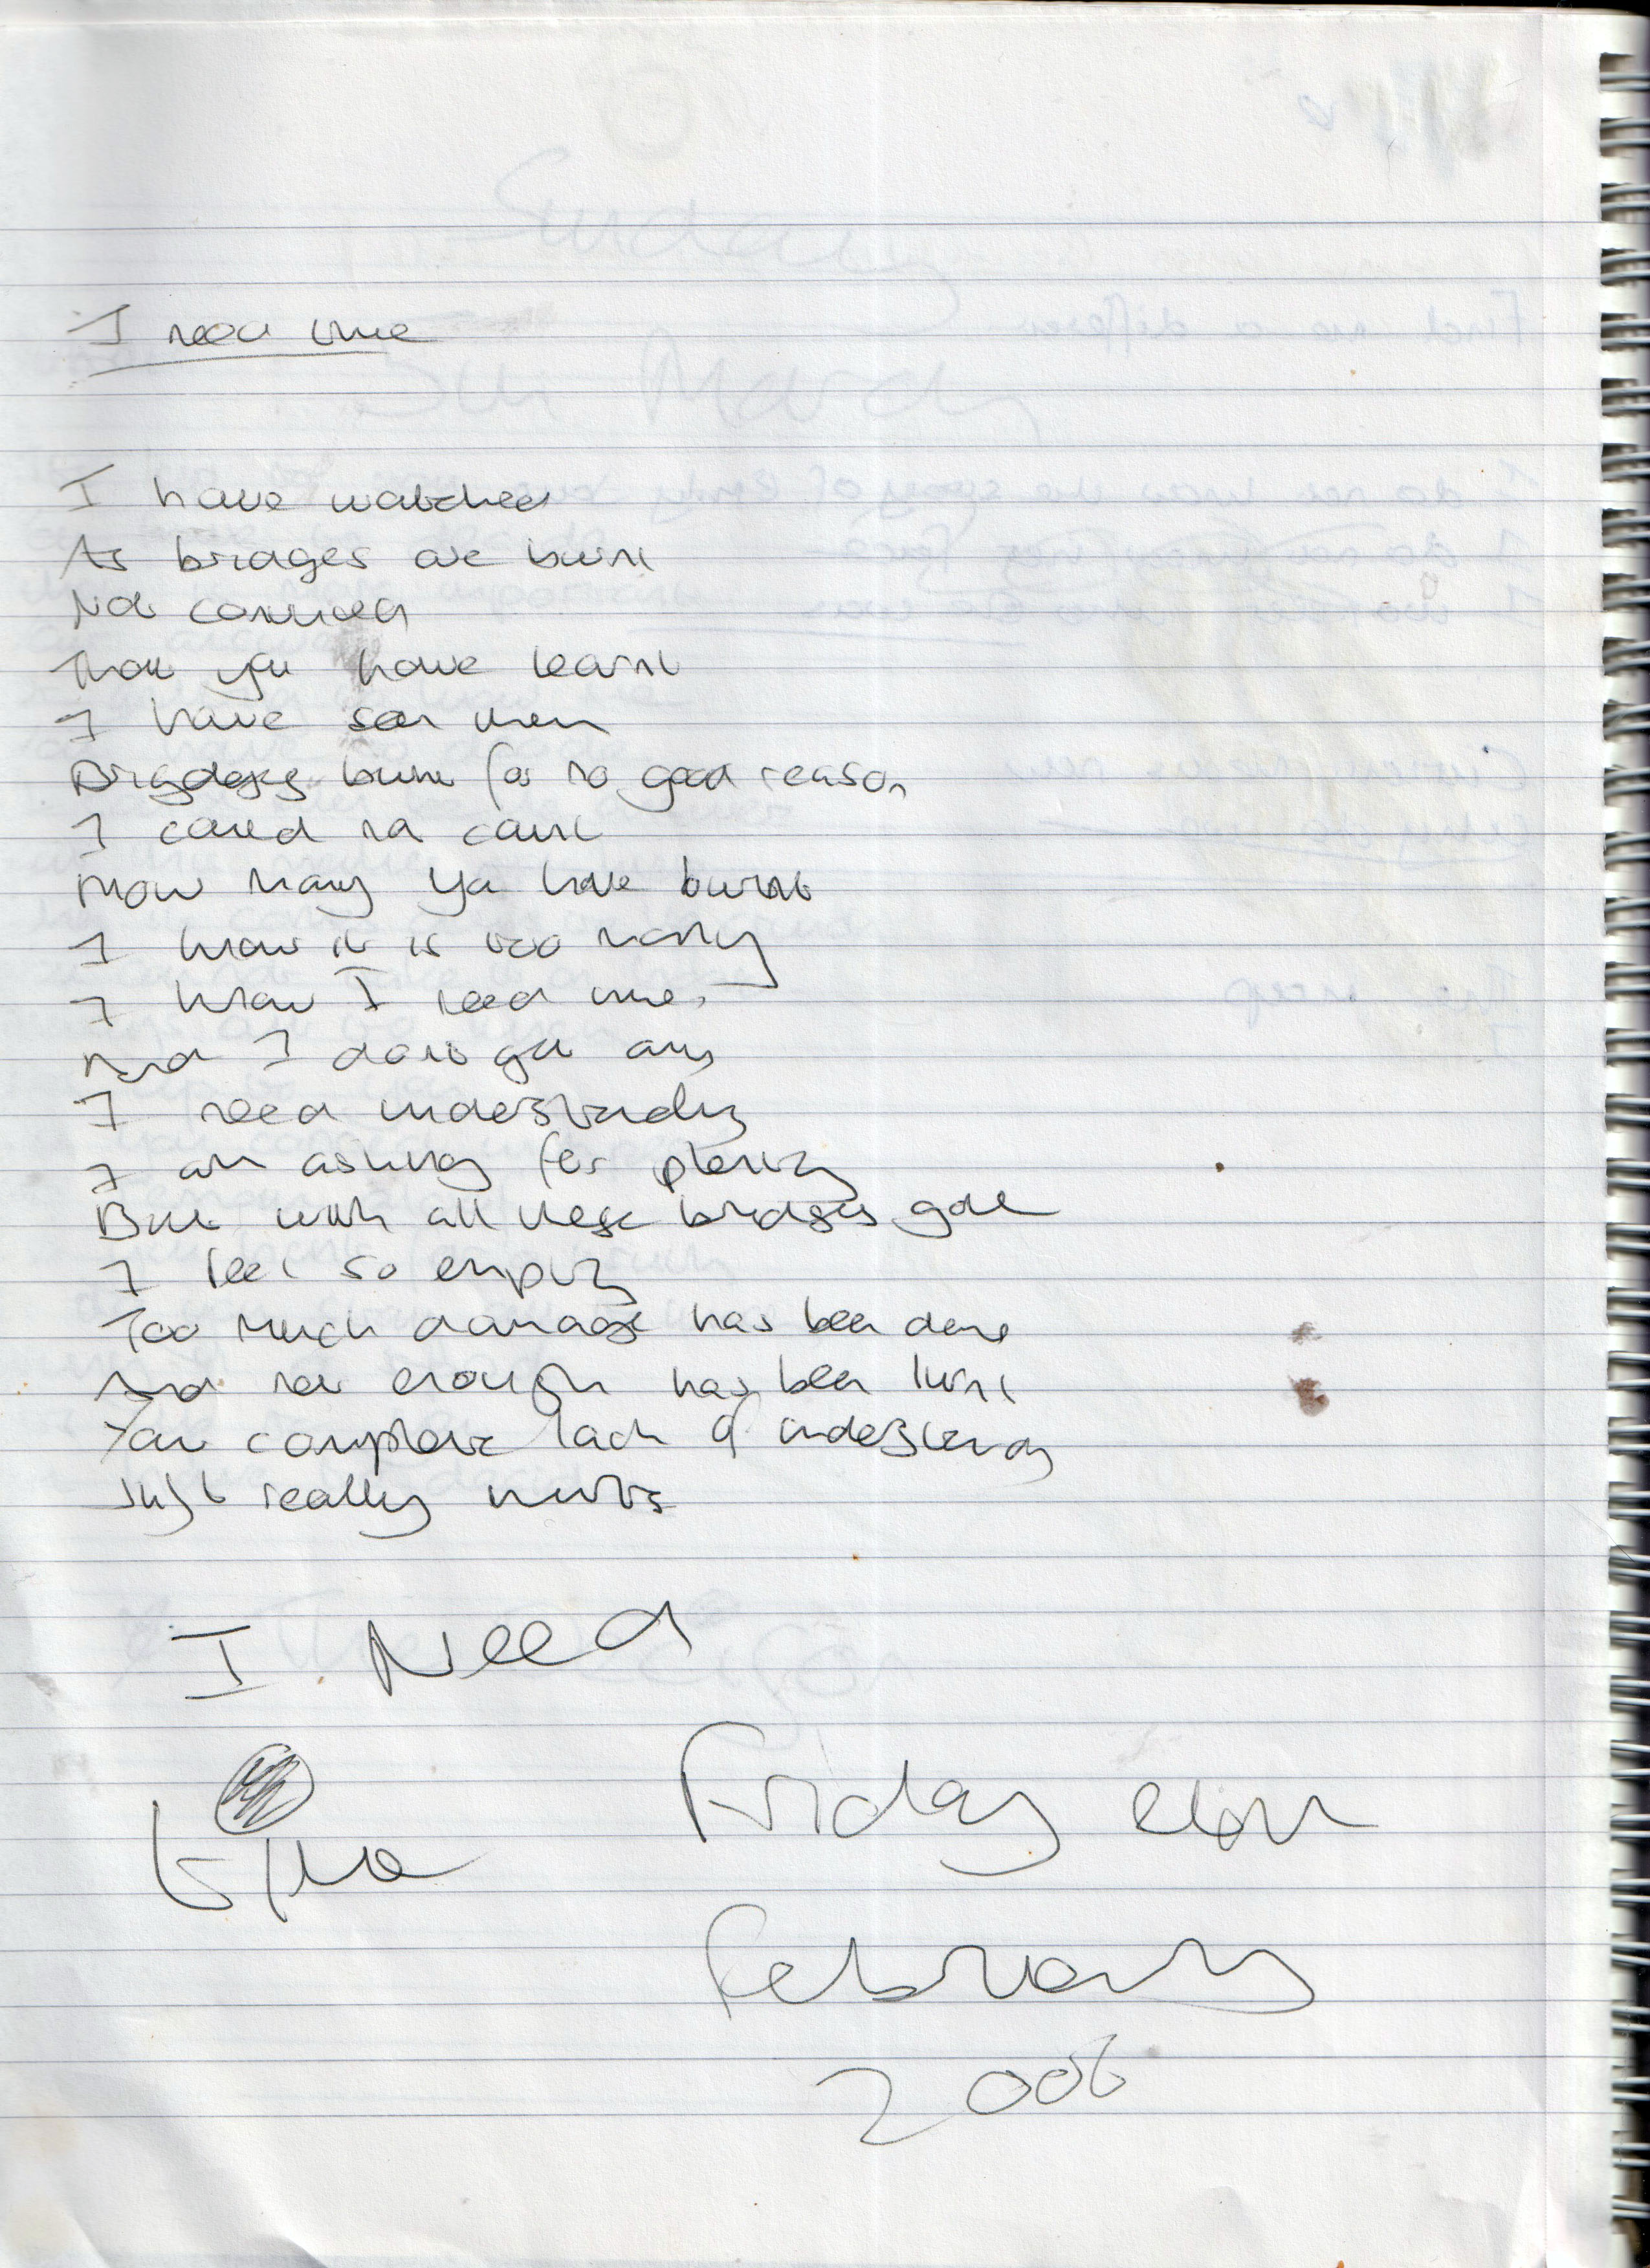 I need time
I have watched
As bridges are burnt
Not convinced
That you have learnt
I have seen them
burn for no good reason
I cared not count
How many you have burnt
I know it is too many
I know I need time
And I dont get any
I need understanding
I am asking for plenty
But with all these bridges gone
I feel so empty
Too much damage has been done
And not enough has been learnt
Your complete lack of understanding
Just really hurts
I Need
Time
Friday
February
2006